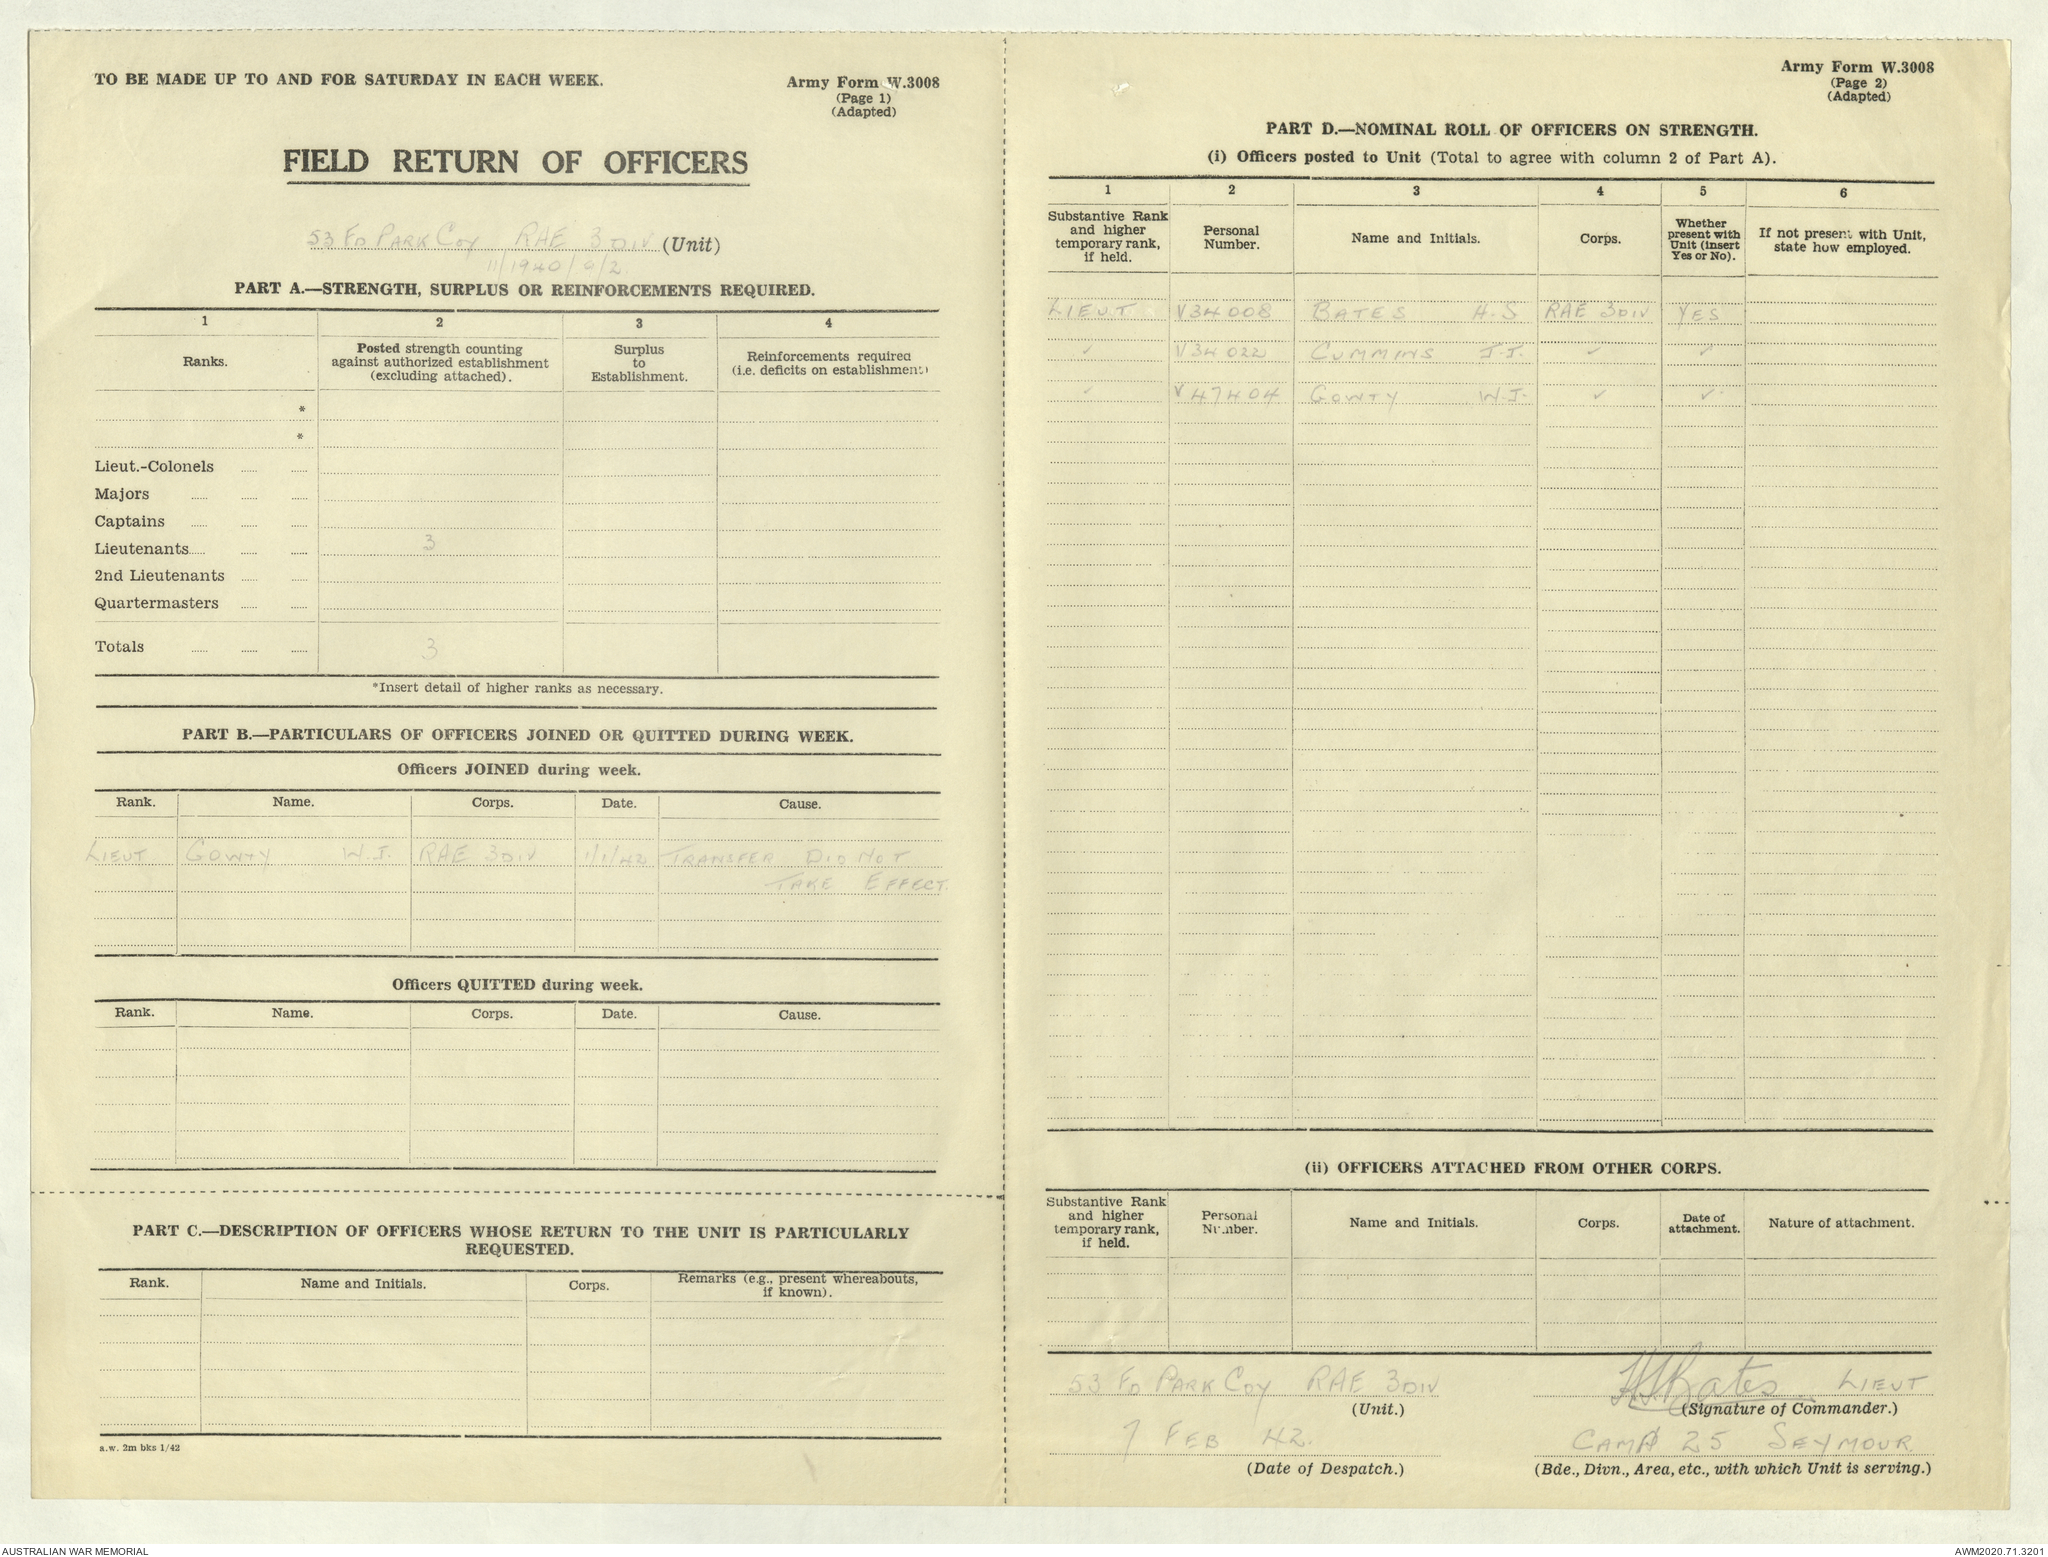 TO BE MADE UP TO AND FOR SATURDAY IN EACH WEEK.
Army Form W.3008
(Page 1)
(Adapted)
FIELD RETURN OF OFFICERS
53 FD PARK COY RAE 3 DIV (Unit)
11/1940/0/2.
PART A.—STRENGTH, SURPLUS OR REINFORCEMENTS REQUIRED.
1 2 3 4
Ranks. Posted strength counting against authorized establishment (excluding attached). Surplus to Establishment. Reinforcements required (i.e. deficits on establishment)
*
*
Lieut.-Colonels
Majors
Captains
Lieutenants 3
2nd Lieutenants
Quartermasters
Totals 3
*Insert detail of higher ranks as necessary.
PART B.—PARTICULARS OF OFFICERS JOINED OR QUITTED DURING WEEK.
Officers JOINED during week.
Rank. Name. Corps. Date. Cause.
LIEUT GOWTY W.J. RAE 3 DIV 1/1/42 TRANSFER DID NOT
TAKE EFFECT.
Officers QUITTED during week.
Rank. Name. Corps. Date. Cause.
PART C.—DESCRIPTION OF OFFICERS WHOSE RETURN TO THE UNIT IS PARTICULARLY
REQUESTED.
Rank. Name and Initials. Corps. Remarks (e.g., present whereabouts, if known).
a.w. 2m bks 1/42
Army Form W.3008
(Page 2)
(Adapted)
PART D.—NOMINAL ROLL OF OFFICERS ON STRENGTH.
(i) Officers posted to Unit (Total to agree with column 2 of Part A).
1 2 3 4 5 6
Substantive Rank and higher temporary rank, if held. Personal Number. Name and Initials. Corps. Whether present with Unit (insert Yes or No). If not present with Unit, state how employed.
LIEUT V34008 BATES H.S RAE 3 DIV YES
✓ V34022 CUMMINS J.J. ✓ ✓
✓ V47404 GOWTY W.J. ✓ ✓
(ii) OFFICERS ATTACHED FROM OTHER CORPS.
Substantive Rank and higher temporary rank, if held. Personal Number. Name and Initials. Corps. Date of attachment. Nature of attachment.
53 FD PARK COY RAE 3 DIV
(Unit.)
HSBates LIEUT
(Signature of Commander.)
7 FEB 42.
(Date of Despatch.)
CAMP 25 SEYMOUR
(Bde., Divn., Area, etc., with which Unit is serving.)
AUSTRALIAN WAR MEMORIAL
AWM2020.71.3201